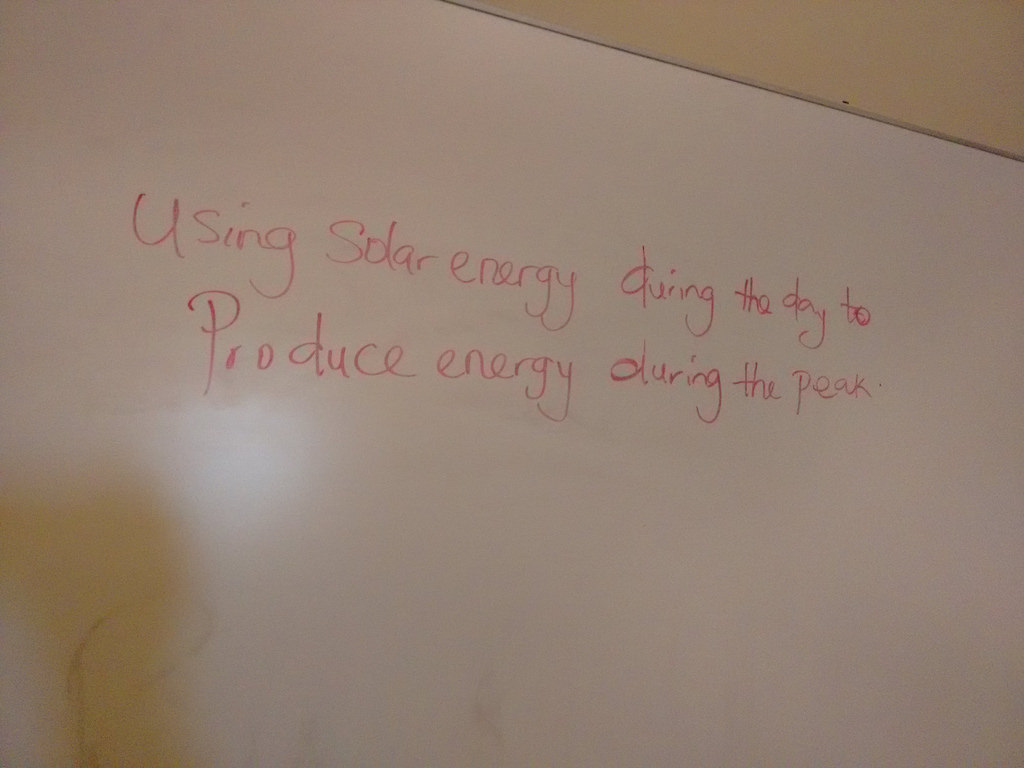 Using Solar energy during the day to
Produce energy during the peak.